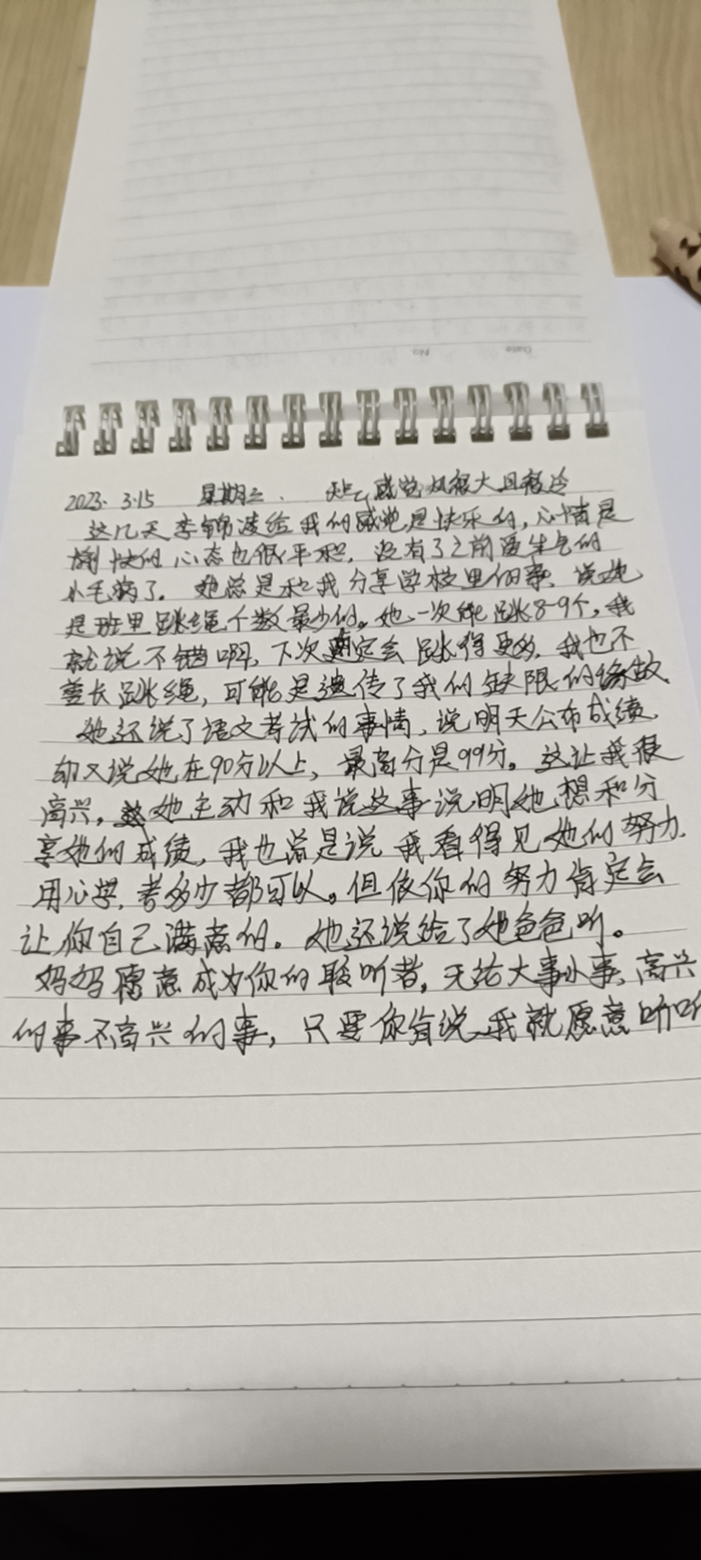 Date
No
2023. 3.15 星期三. 感觉风很大且很冷
这几天李锦凌给我们感觉是快乐的,心情是
愉快的 心态也很平和,没有了之前爱生气的
小毛病了。她总是和我分享学校里的事,说她
是班里跳绳个数最少的。她一次能跳8-9个,我
就说不错啊,下次肯定会跳得更多,我也不
善长跳绳,可能是遗传了我的缺限的缘故。
她还说了语文考试的事情,说明天公布成绩,
却又说她在90分以上,最高分是99分。这让我很
高兴,她主动和我说这事说明她想和分
享她的成绩,我也总是说我看得见她的努力,
用心学,考多少都可以。但依你的努力肯定会
让你自己满意的。她还说给了她爸爸听。
妈妈愿意成为你的聆听者,无论大事小事、高兴
的事不高兴的事,只要你肯说我就愿意听